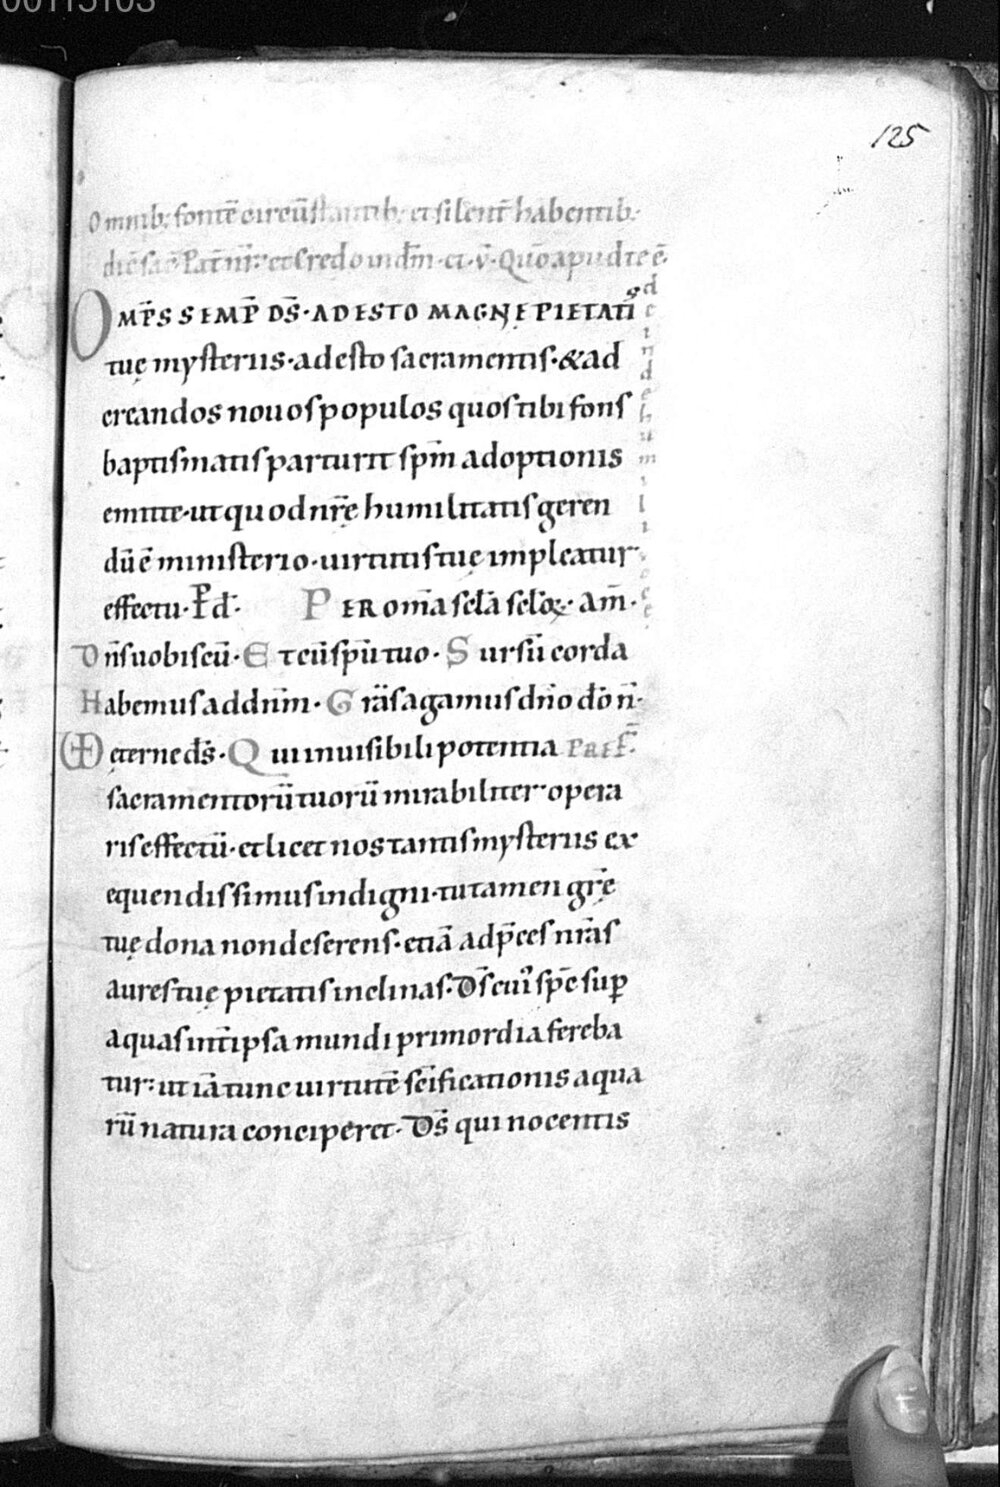 00115103
125
Omnib; fontē circūstantib; et silent̄ habentib;
dic̄ sac̄ Pat̄ nr̄ et Credo in dm̄ · et · v̄ · Quō apud te ē.
OMP̄S SEMP̄ DS̄ · ADESTO MAGNĘ PIETATI
tuę mysteriis · adesto sacramentis · & ad
creandos novos populos quos tibi fons
baptismatis parturit sp̄m adoptionis
emitte · ut quod nr̄ę humilitatis geren
dū ē ministerio · uirtutis tuę impleatur
effectu · P d̄ · PER om̄a sc̄la sc̄loꝝ · am̄ ·
Dn̄s uobiscū · Et cū sp̄u tuo · Sursū corda
Habemus ad dnm̄ · Grās agamus dn̄o dō n̄ ·
ęterne ds̄ · Qui inuisibili potentia PREF̄
sacramentorū tuorū mirabiliter opera
ris effectū · et licet nos tantis mysteriis ex
equendis simus indigni · tu tamen gr̄ę
tuę dona non deserens · etiā ad p̄ces nr̄as
aures tuę pietatis inclinas · Ds̄ cui' sp̄c sup̄
aquas int̄ ipsa mundi primordia fereba
tur · ut iā tunc uirtutē sc̄ificationis aqua
rū natura conciperet · Ds̄ qui nocentis